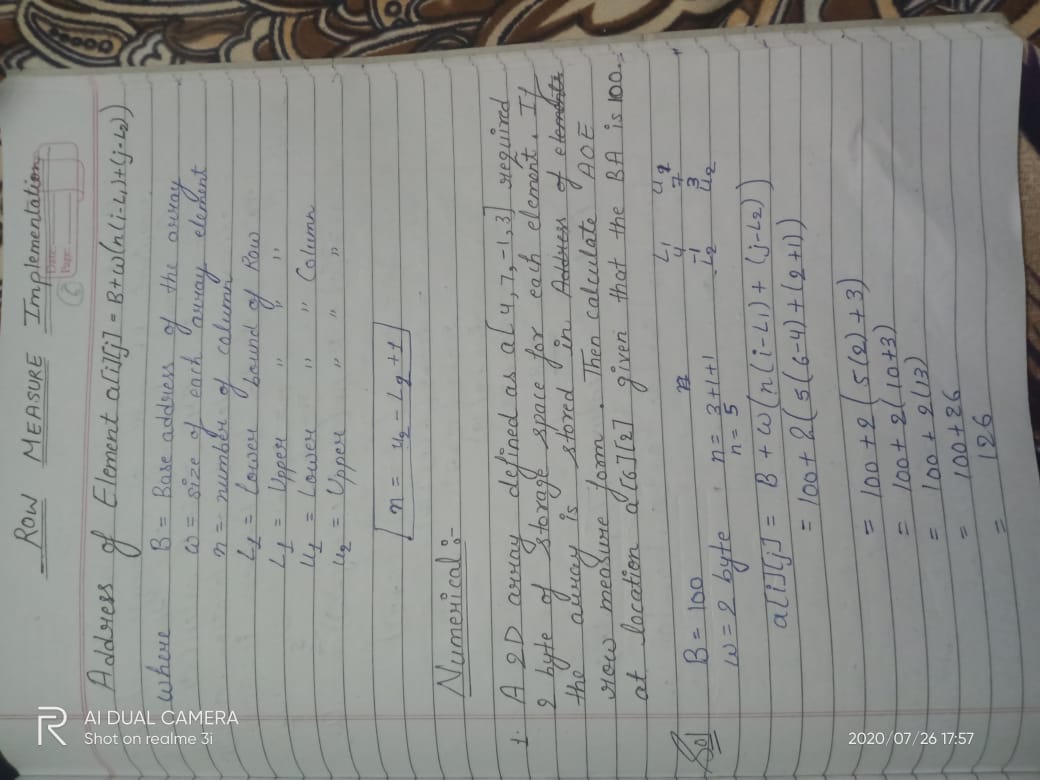 Date
Page
6
ROW MEASURE Implementation
Address of Element a[i][j] = B+ω(n(i-L1)+(j-L2))
where B = Base address of the array
ω = size of each array element
n = number of column
L1 = Lower bound of Row
L1 = Upper ,, ,,
U1 = Lower ,, ,, Column
U2 = Upper ,, ,,
n = u2 - L2 + 1
Numerical :-
1. A 2D array defined as a[4, 7, -1, 3] required
2 byte of storage space for each element. If
the array is stored in Address of elements
row measure form. Then calculate AOE
at location a[6][2] given that the BA is 100.
Sol
L1 U2
4 7
B = 100 n -1 3
L2 U2
ω = 2 byte n = 3+1+1
n = 5
a[i][j] = B + ω(n(i-L1) + (j-L2))
= 100 + 2(5(6-4)+(2+1))
= 100 + 2(5(2)+3)
= 100 + 2(10+3)
= 100 + 2(13)
= 100 + 26
= 126
AI DUAL CAMERA
Shot on realme 3i
2020/07/26 17:57